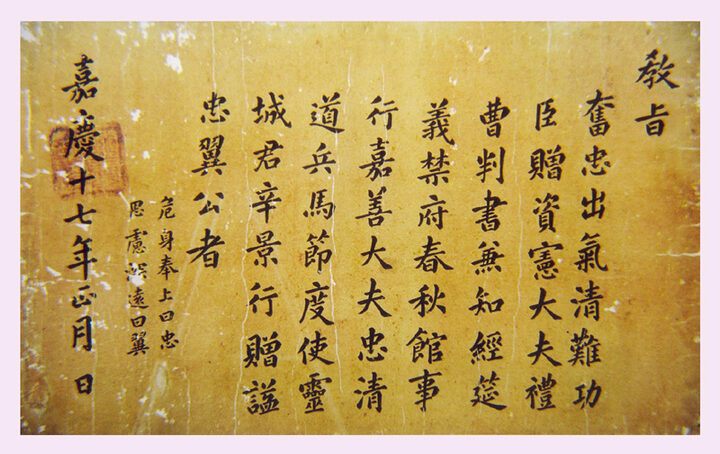 敎旨
奮忠出氣清難功
臣贈資憲大夫禮
曹判書兼知經筵
義禁府春秋館事
行嘉善大夫忠清
道兵馬節度使靈
城君辛景行贈諡
忠翼公者
危身奉上曰忠
思慮深遠曰翼
嘉慶十七年正月 日